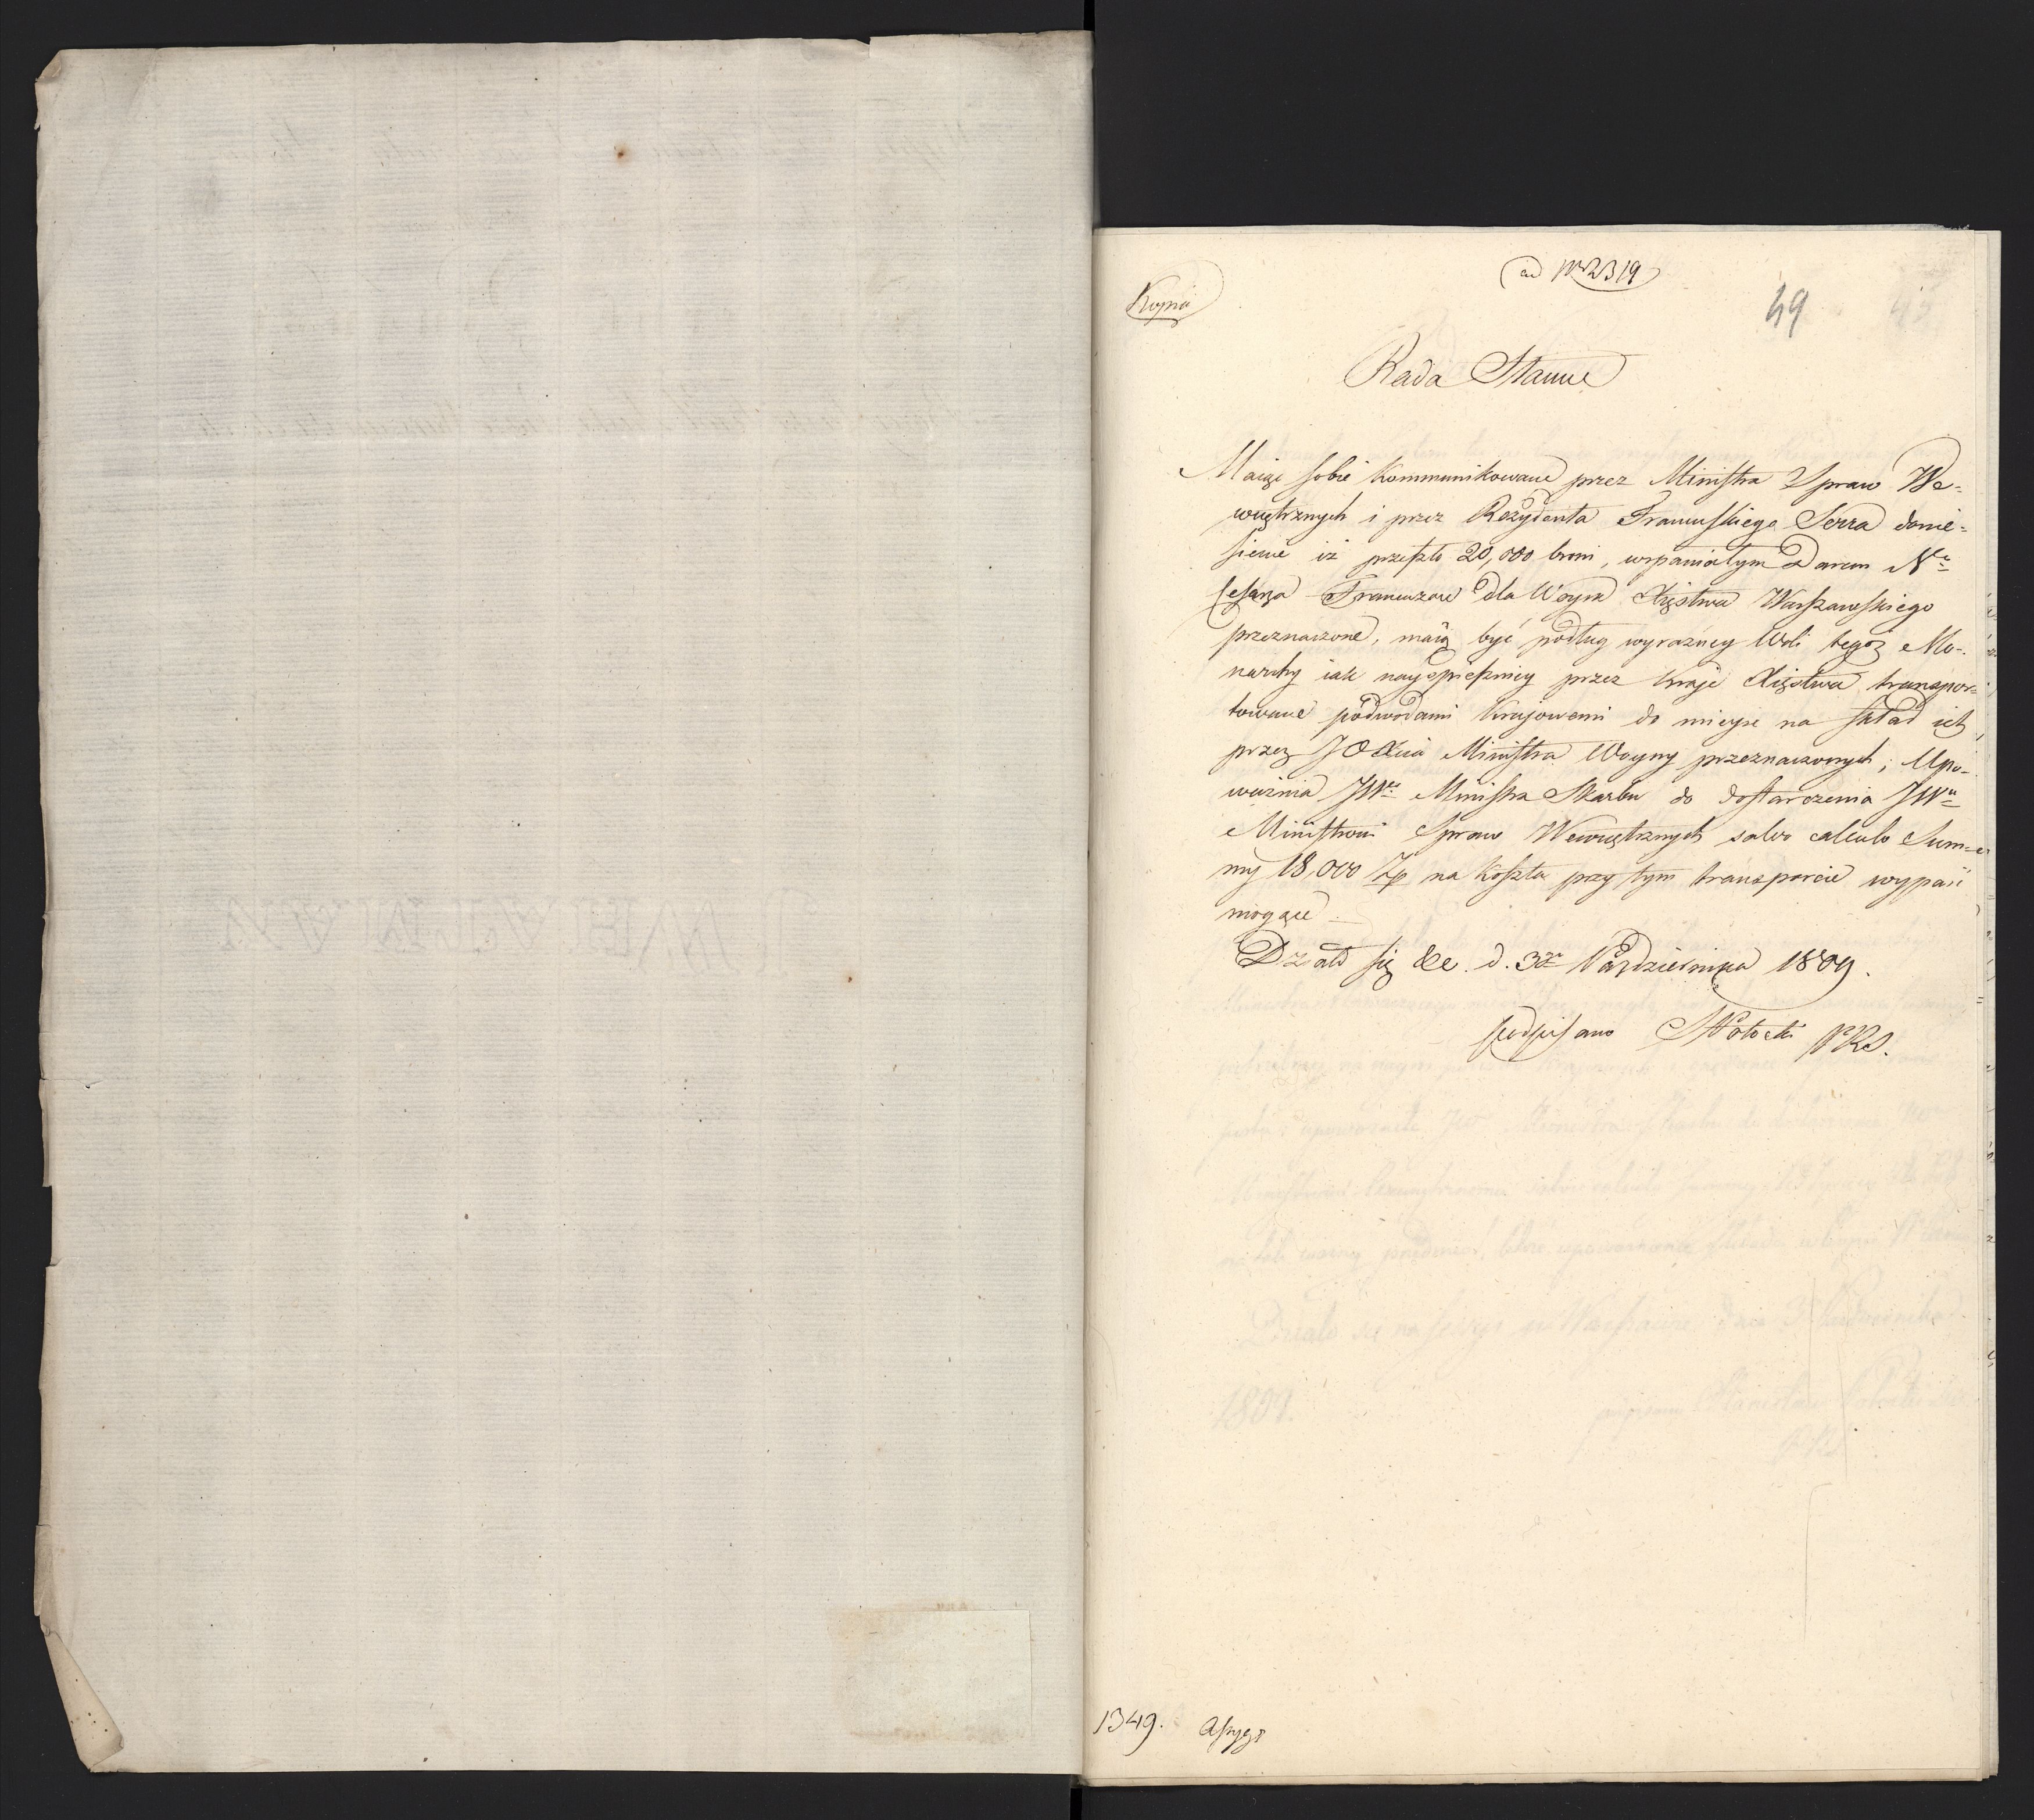 ad Nr 2319
Kopia
49
Rada Stanu
Maiąc sobie kommunikowane przez Ministra Spraw We-
wnętrznych i przez Rezydenta Francuskiego Serra donie-
sienie iż przeszło 20,000 broni, wspaniałym Darem N°
Cesarza Francuzow dla Woyska Xięstwa Warszawskiego
przeznaczone, maią być podług wyraźney Woli tegoż Mo-
narchy iak nayśpieszniey przez kraje Xięstwa transpor-
towane podwodami krajowemi do mieysc na skład ich
przez JO Xcia Ministra Woyny przeznaczonych; Upo-
ważnia JWo Ministra Skarbu do dostarczenia JWu
Ministrowi Spraw Wewnętrznych salvo calculo Sum-
my 18,000 Zp na koszta przy tym transporcie wypaść
mogące
Działo się &c. d. 3go Października 1809.
podpisano SPotocki PRS.
1349. Assyg: